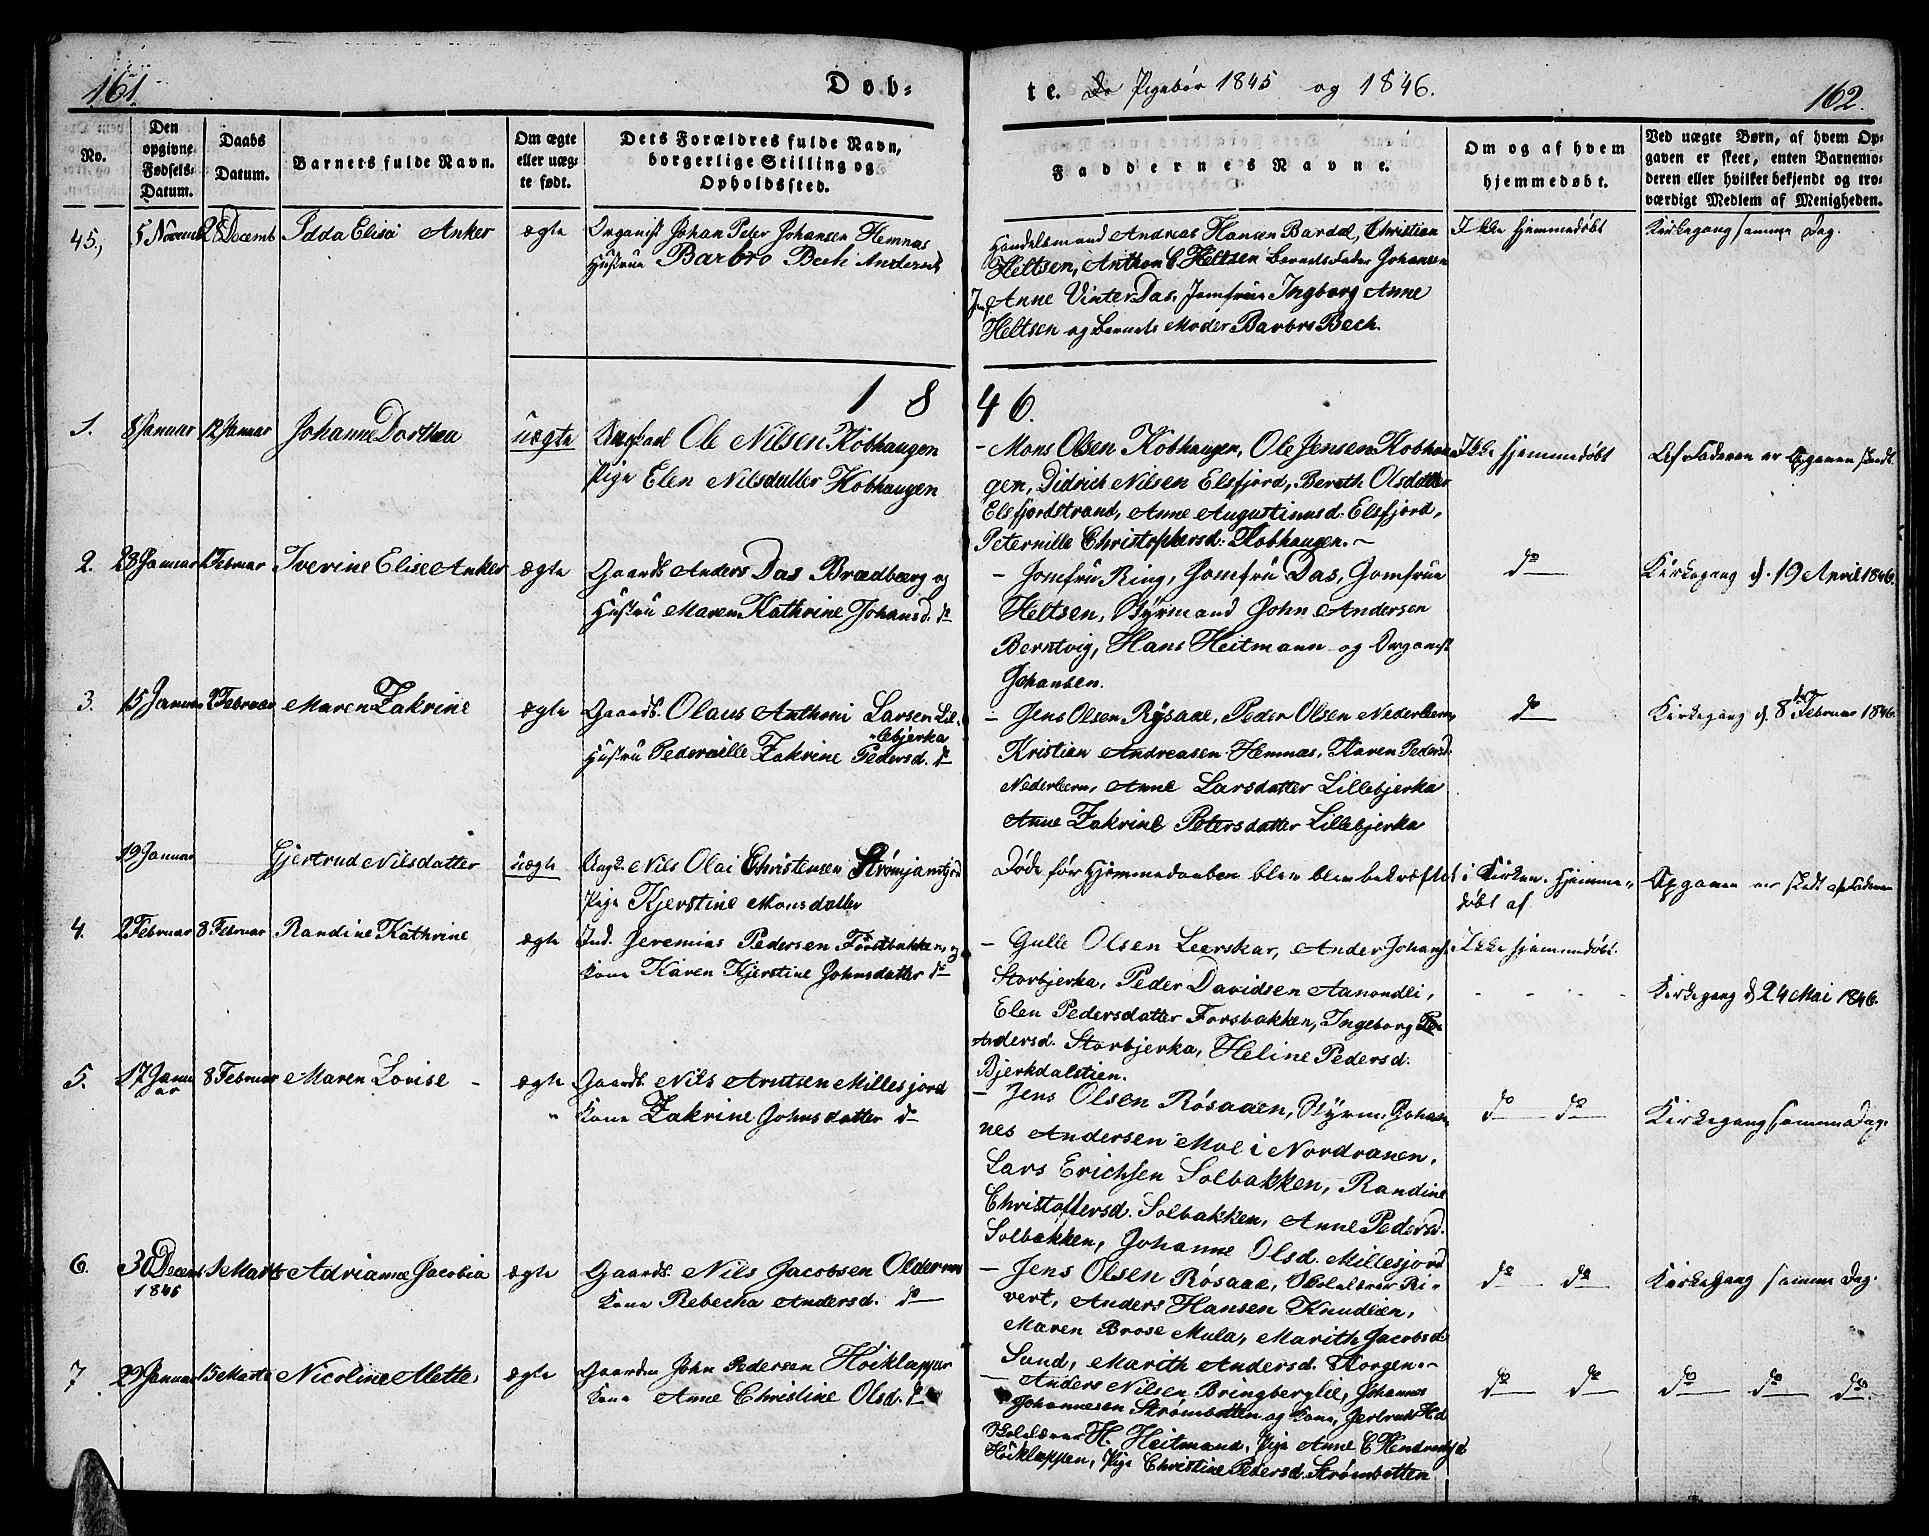 161.
Døb-
te. De Pigebør 1845 og 1846.
162.
No.
Den opgivne Fødsels-Datum.
Daabs Datum.
Barnets fulde Navn.
Om ægte eller uæg-te født.
Dets Forældres fulde Navn, borgerlige Stilling og Opholdssted.
Faddernes Navne.
Om og af hvem hjemmedøbt.
Ved uægte Børn, af hvem Op-gaven er skeet, enten Barnemo-deren eller hvilket bekjendt og tro-værdigt Medlem af Menigheden.
45, 5 Novemb 28 Decemb Idda Elisa Anker ægte
Organist Johan Peter Johansen Hemnæs
Hustrue Barbro Bech Andersd
Handelsmand Andreas Hansen Bardal, Christian
Heltsen, Anthon C Heltsen Barnets Fader Johansen
Jmf. Anne Vinter Das, Jomfrue Ingborg Anne
Heltsen og Barnets Moder Barbro Bech.
Ikke hjemmedøbt
Kirkegang samme Dag.
1846.
1. 8 Januar 12 Januar Johanne Dorthea uægte
Ungkarl Ole Nilsen Kobhaugen
Pige Elen Nilsdatter Kobhaugen
- Mons Olsen Kobhaugen, Ole Jensen Kobhau-
gen, Didrich Nilsen Elsfjord, Bereth Olsdatter
Elsfjordstrand, Anne Augustinusd. Elsfjord,
Peternille Christophersd: Kobhaugen.-
Ikke hjemmedøbt
Af Faderen er Opgaven skeedt.
2. 28 Januar 1 Februar Iverine Elise Anker ægte
Gaardb. Anders Das Brædbærg og
Hustru Maren Kathrine Johansd. do
- Jomfru Ring, Jomfru Das, Jomfrue
Heltsen, Styrmand John Andersen
Berntvig, Hans Heitmann og Organist
Johansen.
do
Kirkegang d. 19 April 1846.
3. 15 Januar 2 Februar Maren Zakrine ægte
Gaardb. Olaus Anthoni Larsen Lil-
lebjerka
Hustru Pedernille Zakrine Pedersd. do
- Jens Olsen Rÿsaae, Peder Olsen Nederleern,
Kristian Andreasen Hemnæs, Karen Pedersd.
Nederleern, Anne Larsdatter Lillebjerka
Anne Zakrine Petersdatter Lillebjerka
do
Kirkegang d. 8de Februar 1846.
19 Januar Gjertrud Nilsdatter uægte
Ungk. Nils Olai Christensen Strømjamfjord
Pige Kjerstine Monsdatter
Døde før Hjemmedaaben blev bekræftet i Kirken. Hjemme-
døbt af
Opgaven er skedt af Faderen
4. 2 Februar 8 Februar Randine Kathrine ægte
Ind. Jeremias Pedersen Forsbakken, og
Kone Karen Kjerstine Johnsdatter do
- Gulle Olsen Leerskar, Ander Johans
Storbjerka, Peder Davidsen Aanondli,
Elen Pedersdatter Forsbakken, Ingeborg
Andersd. Storbjerka, Heline Pedersd.
Bjerkdalstien.
Ikke hjemmedøbt.
Kirkegang d 24 Mai 1846.
5. 17 Janu
ar 8 Februar Maren Lovise - ægte
Gaardb. Nils Arntsen Millesjord
" Kone Zakrine Johnsdatter do
- Jens Olsen Røsaaen, Styrm. Johan-
nes Andersen Moe i Nordranen,
Lars Erichsen Solbakken, Randine
Christoffersd. Solbakken, Anne Pedersd.
Solbakken, Johanne Olsd. Millesjord
do do
Kirkegang samme Dag.
6. 30 Decem
1845 1 Marts Adrianne Jacobia ægte
Gaardb. Nils Jacobsen Olderneu
Kone Rebecka Andersd. do
- Jens Olsen Røsaae, Skolelærer Si-
vert, Anders Hansen Knudlien,
Maren Brose Mula, Marith Jacobsd
Sund, Marith Andersd. Korgen.-
do do
Kirkegang samme Dag.
7. 29 Januar 15 Marts Nicoline Alette, ægte
Gaardm John Pedersen Höiklappen
Kone Anne Christine Olsd. do
- Anders Nilsen Bringberglie, Johannes
Johannesen Strømbotten og Kone, Gertrud H.d
Skolelærer H. Heitmand, Pige Anne C Hendrichsd
Höiklappen, Pige Christine Pedersd. Strømbotten
do do
do do do.